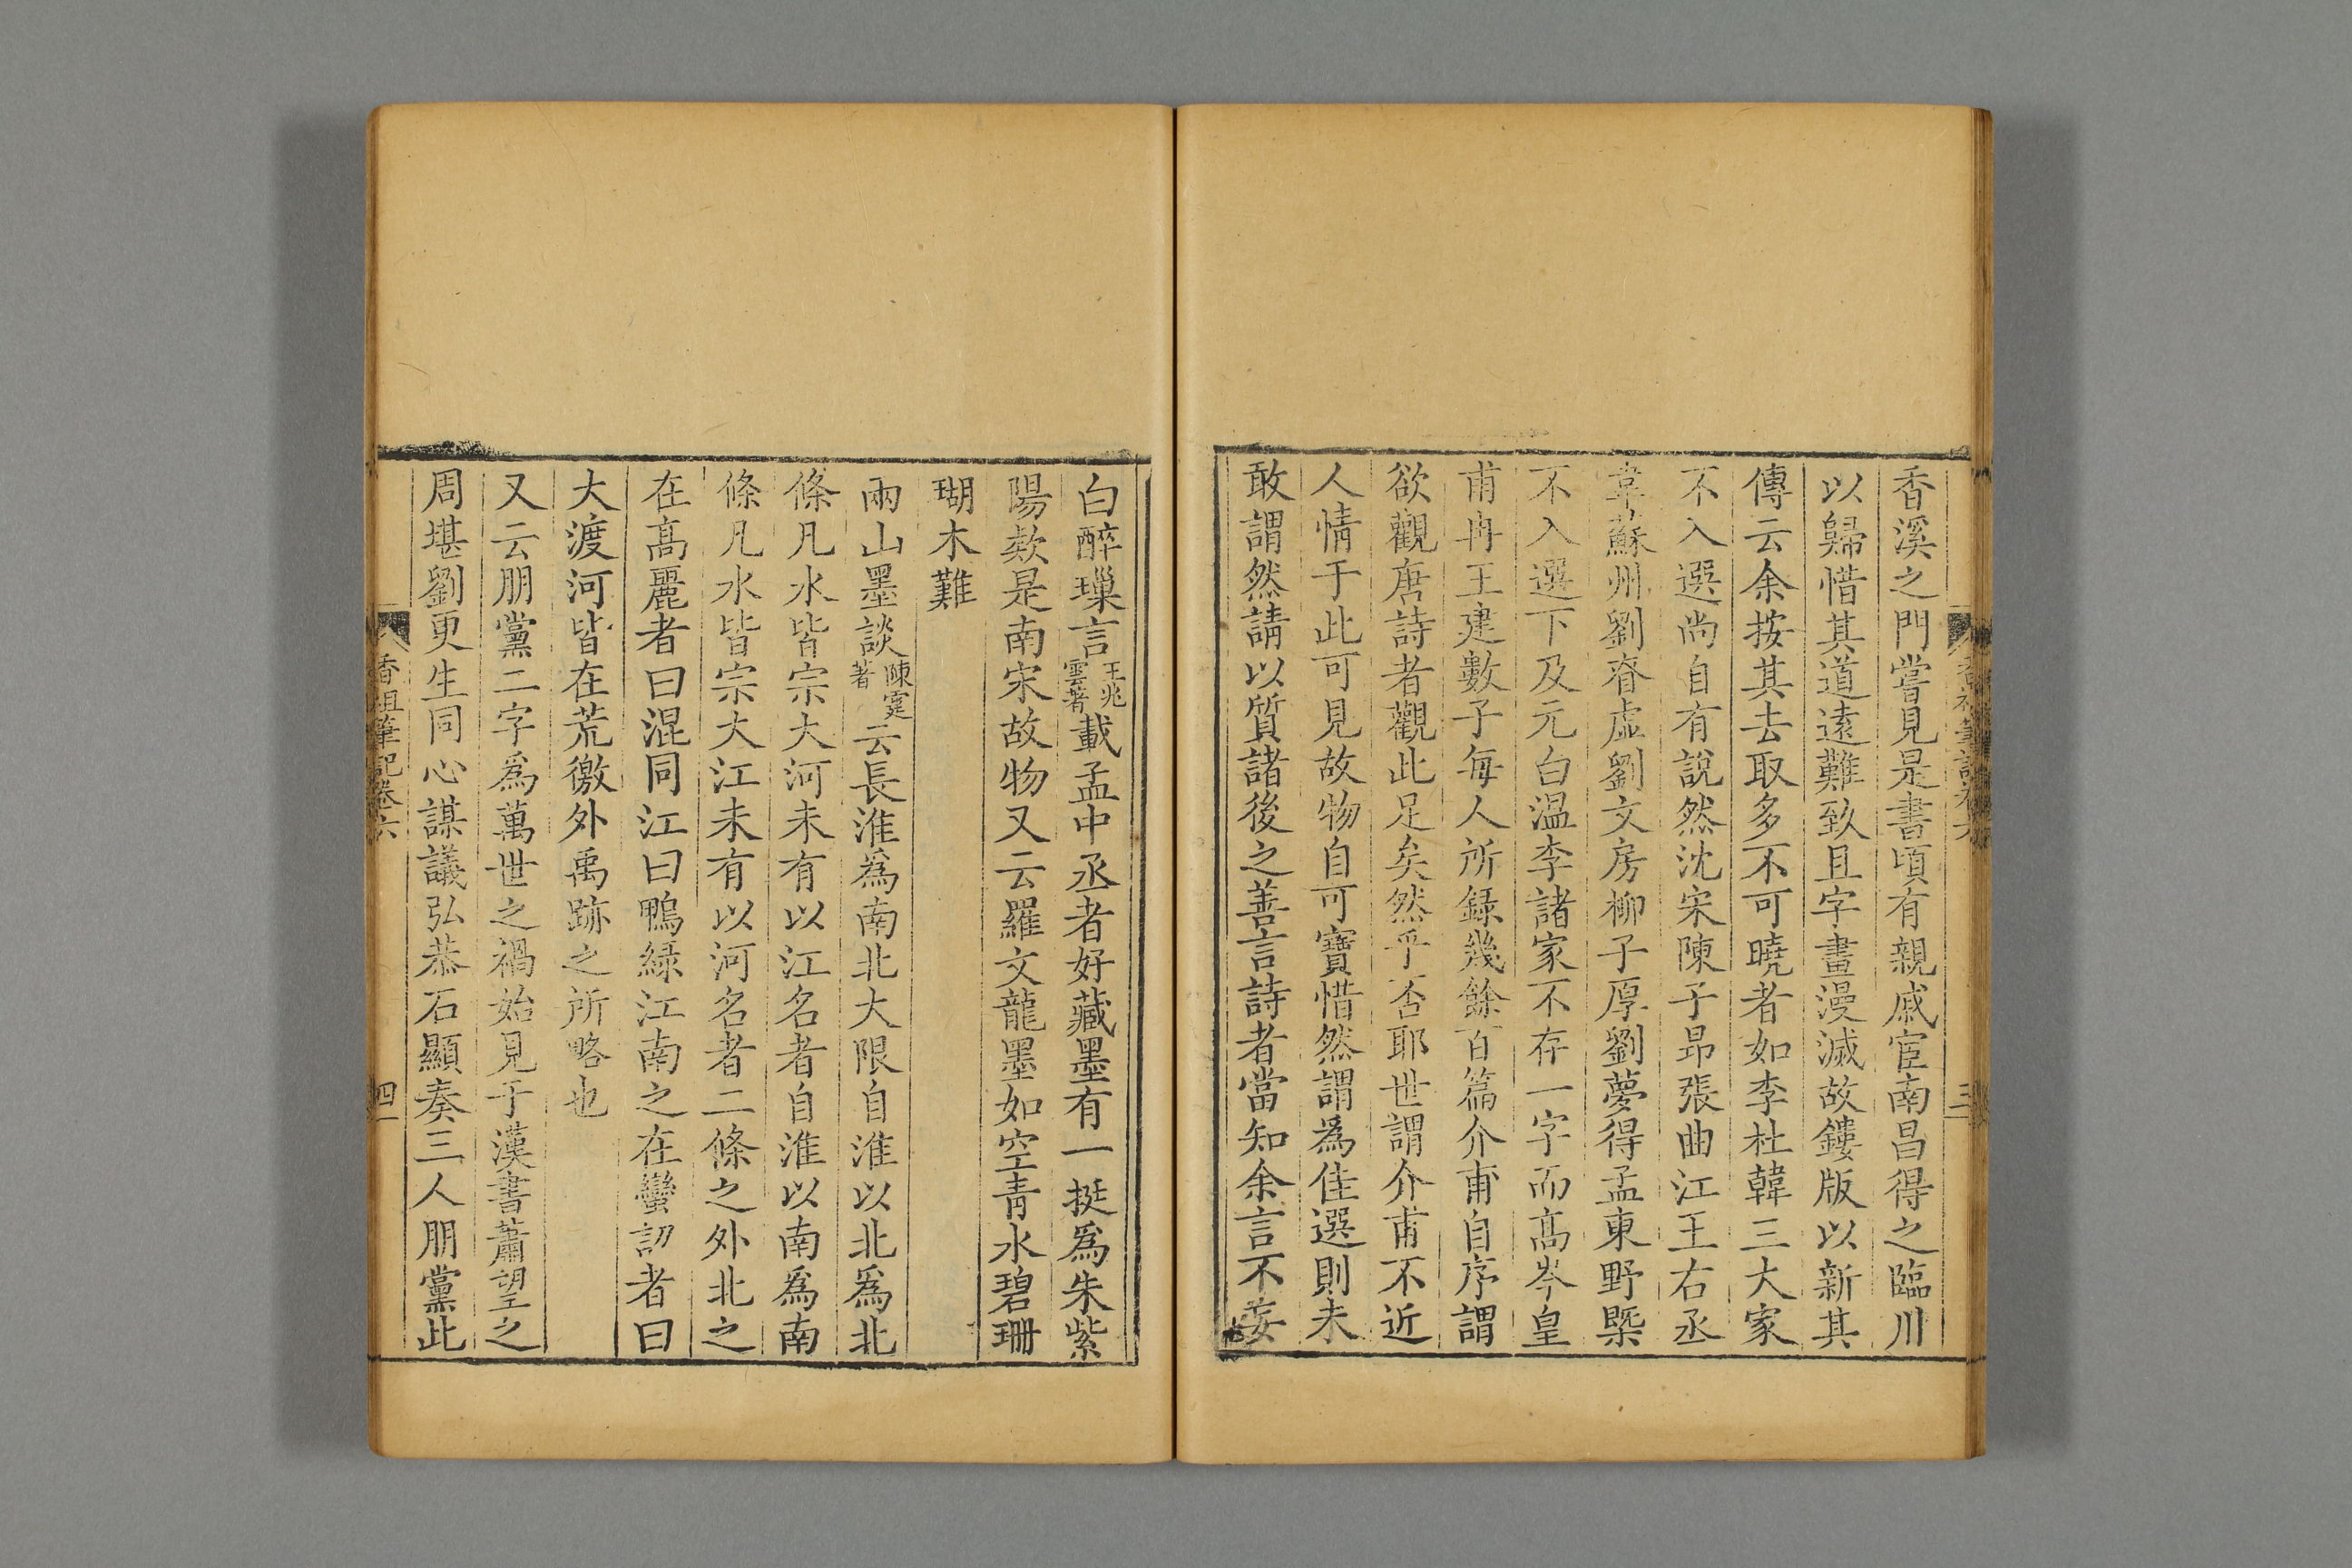 香溪之門嘗見是書頃有親戚宦南昌得之臨川
以歸惜其道遠難致且字畫漫滅故鏤版以新其
傳云余按其去取多不可曉者如李杜韓三大家
不入選尚自有說然沈宋陳子昂張曲江王右丞
韋蘇州劉眘虛劉文房柳子厚劉夢得孟東野槩
不入選下及元白温李諸家不存一字而髙岑皇
甫冉王建數子每人所錄幾餘百篇介甫自序謂
欲觀唐詩者觀此足矣然乎否耶世謂介甫不近
人情于此可見故物自可寶惜然謂爲佳選則未
敢謂然請以質諸後之善言詩者當知余言不妄
香祖筆記卷六
三
白醉璅言王兆雲著載孟中丞者好藏墨有一挺爲朱紫
陽欵是南宋故物又云羅文龍墨如空青水碧珊
瑚木難
兩山墨談陳霆著云長淮爲南北大限自淮以北爲北
條凡水皆宗大河未有以江名者自淮以南爲南
條凡水皆宗大江未有以河名者二條之外北之
在髙麗者曰混同江曰鴨綠江南之在蠻詔者曰
大渡河皆在荒徼外禹跡之所略也
又云朋黨二字爲萬世之禍始見于漢書蕭望之
周堪劉更生同心謀議弘恭石顯奏三人朋黨此
香祖筆記卷六
四